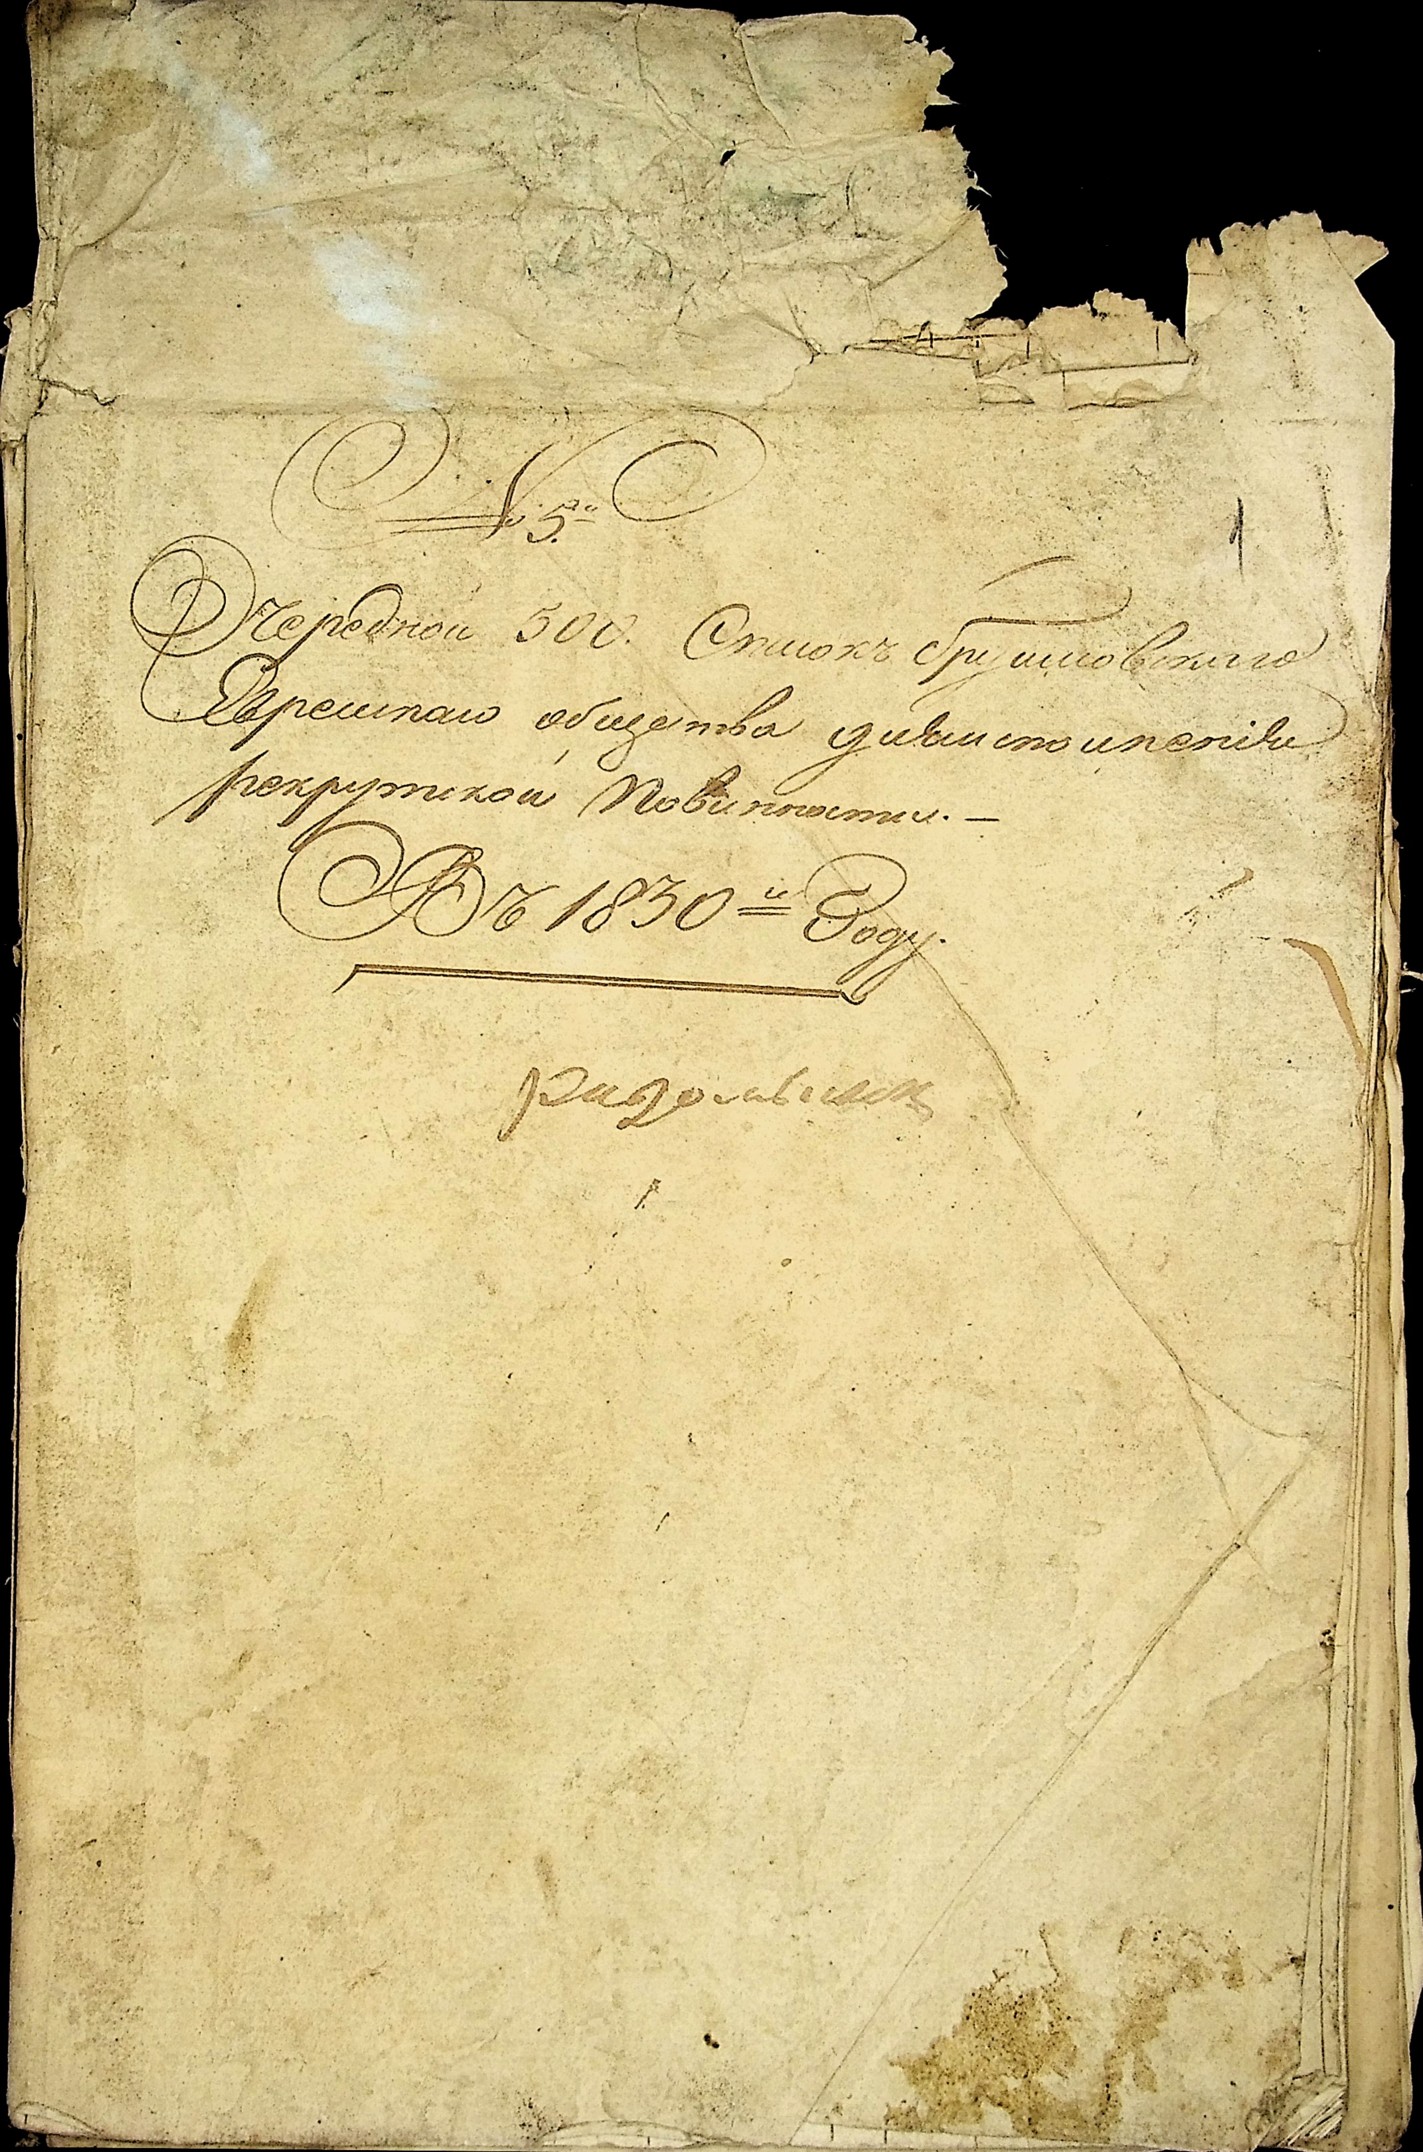 № 5й
1
Очередной 500. Списокъ брусиловскаго
Еврейскаго общества для исполненія
рекрутской повинности. —
Въ 1830 м Году.